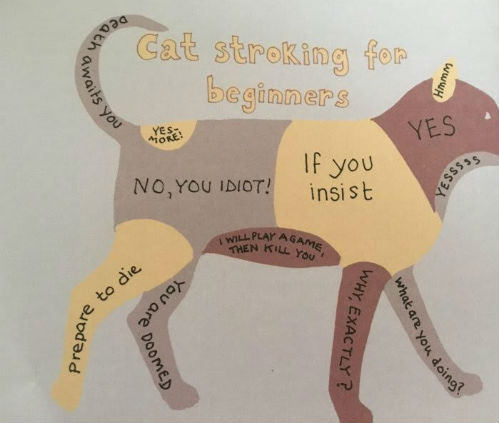 Cat stroking for
beginners
Death awaits you
YES-
MORE!
NO, YOU IDIOT!
If you
insist
Hmmm
YES
YESSSSS
I WILL PLAY A GAME,
THEN KILL YOU
Prepare to die
You are DOOMED
WHY, EXACTLY?
What are you doing?